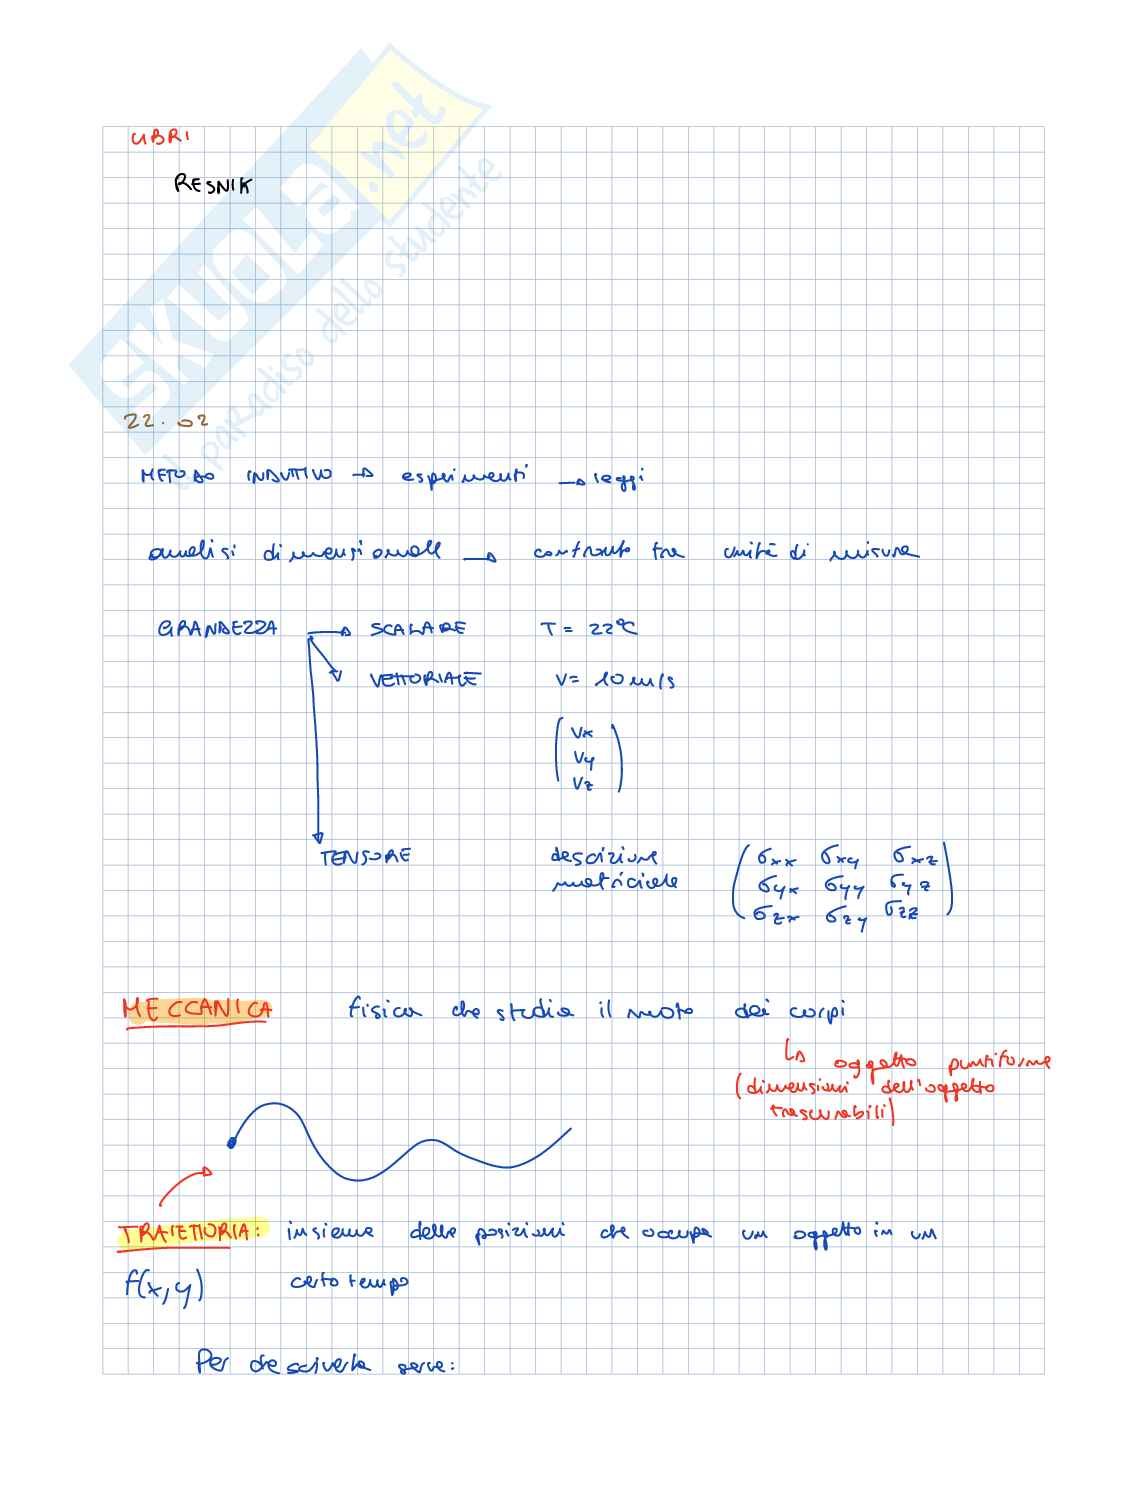 LIBRI
RESNIK
SKUOLA.net
il paradiso dello studente
22.02
METODO INDUTTIVO → esperimenti → leggi
analisi dimensionale → confronto tra unità di misura
GRANDEZZA → SCALARE T = 22°C
VETTORIALE V = 10 m/s
Vx
Vy
Vz
TENSORE descizione
matriciale
σxx σxy σxz
σyx σyy σyz
σzx σzy σzz
MECCANICA fisica che studia il moto dei corpi
↳ oggetto puntiforme
(dimensioni dell'oggetto
trascurabili)
TRAIETTORIA: insieme delle posizioni che occupa un oggetto in un
f(x,y) certo tempo
Per desciverla serve: